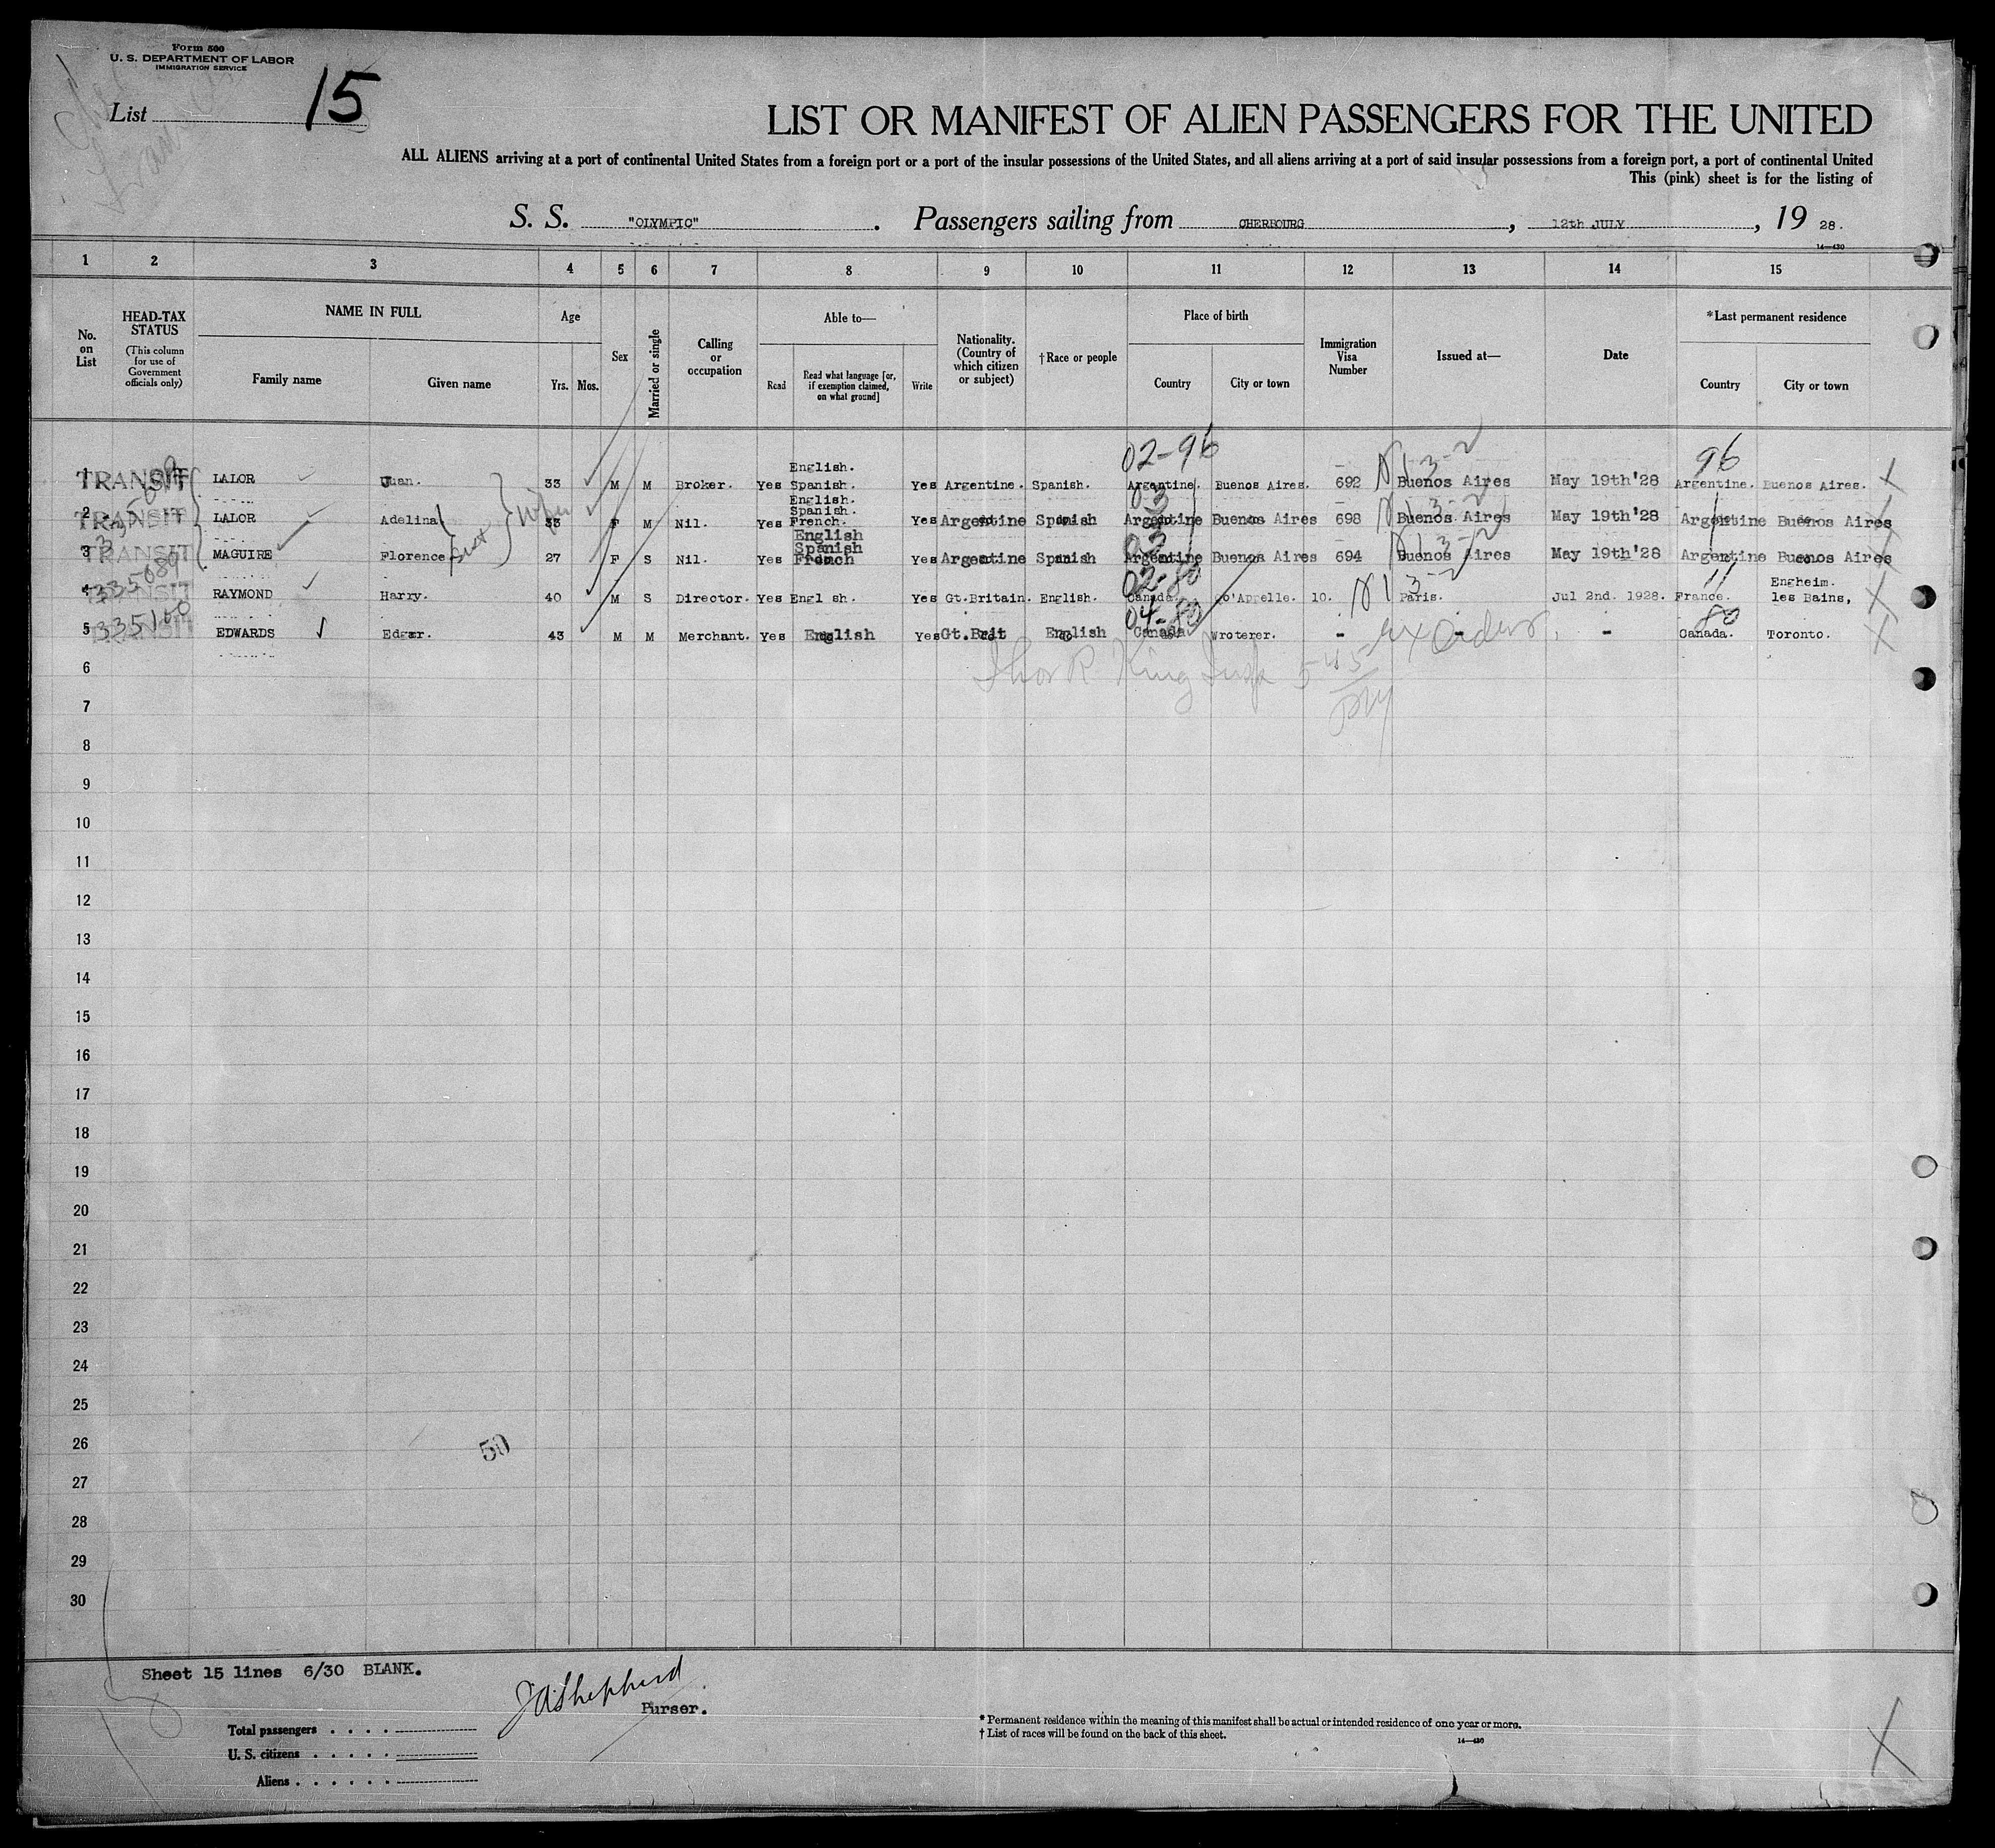 Form 500
U. S. DEPARTMENT OF LABOR
IMMIGRATION SERVICE
List 15
LIST OR MANIFEST OF ALIEN PASSENGERS FOR THE UNITED
ALL ALIENS arriving at a port of continental United States from a foreign port or a port of the insular possessions of the United States, and all aliens arriving at a port of said insular possessions from a foreign port, a port of continental United
This (pink) sheet is for the listing of
S. S. "OLYMPIC". Passengers sailing from CHERBOURG, 12th JULY, 19 28.
14—430
1 2 3 4 5 6 7 8 9 10 11 12 13 14 15
No. on List
HEAD-TAX STATUS
(This column for use of Government officials only)
NAME IN FULL
Family name Given name
Age
Yrs. Mos.
Sex
Married or single
Calling or occupation
Able to—
Read Read what language [or, if exemption claimed, on what ground] Write
Nationality. (Country of which citizen or subject)
†Race or people
Place of birth
Country City or town
Immigration Visa Number
Issued at—
Date
*Last permanent residence
Country City or town
02-96 96
1 TRANSIT LALOR Juan. 33 M M Broker. Yes English. Spanish. Yes Argentine. Spanish. Argentine. Buenos Aires. 692 Buenos Aires May 19th'28 Argentine. Buenos Aires.
2 TRANSIT LALOR Adelina wife 33 F M Nil. Yes English. Spanish. French. Yes Argentine Spanish Argentine Buenos Aires 698 Buenos Aires May 19th'28 Argentine Buenos Aires
3 TRANSIT MAGUIRE Florence 27 F S Nil. Yes English Spanish French Yes Argentine Spanish Argentine Buenos Aires 694 Buenos Aires May 19th'28 Argentine Buenos Aires
335089 02-80 11
4 TRANSIT RAYMOND Harry. 40 M S Director. Yes Engl sh. Yes Gt.Britain. English. Canada. Qo'Appelle. 10. Paris. Jul 2nd. 1928. France. Engheim. les Bains,
335100 04-80 80
5 TRANSIT EDWARDS Edgar. 43 M M Merchant. Yes English Yes Gt.Brit English Canada Wroterer. - - - Canada. Toronto.
Ex Orders
Thos R. King Insp 545
6
7
8
9
10
11
12
13
14
15
16
17
18
19
20
21
22
23
24
25
26
50
27
28
29
30
Sheet 15 lines 6/30 BLANK.
JAShepherd
Purser.
Total passengers
U. S. citizens
Aliens
* Permanent residence within the meaning of this manifest shall be actual or intended residence of one year or more.
† List of races will be found on the back of this sheet.
14—430